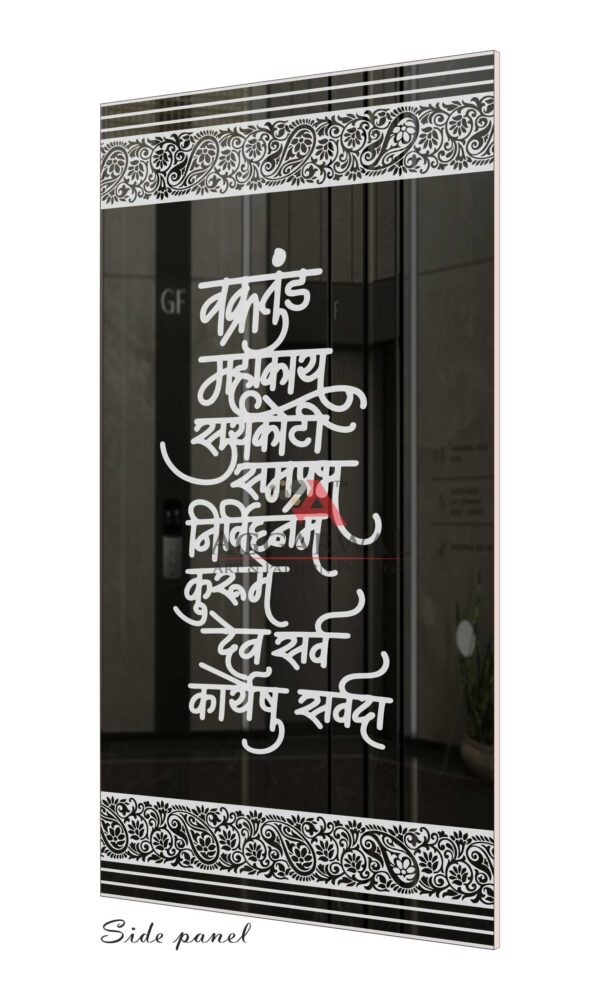 GF
वक्रतुंड
महाकाय
सूर्यकोटी
समप्रभ
निर्विघ्नम
कुरूमे
देव सर्व
कार्येषु सर्वदा
Side panel